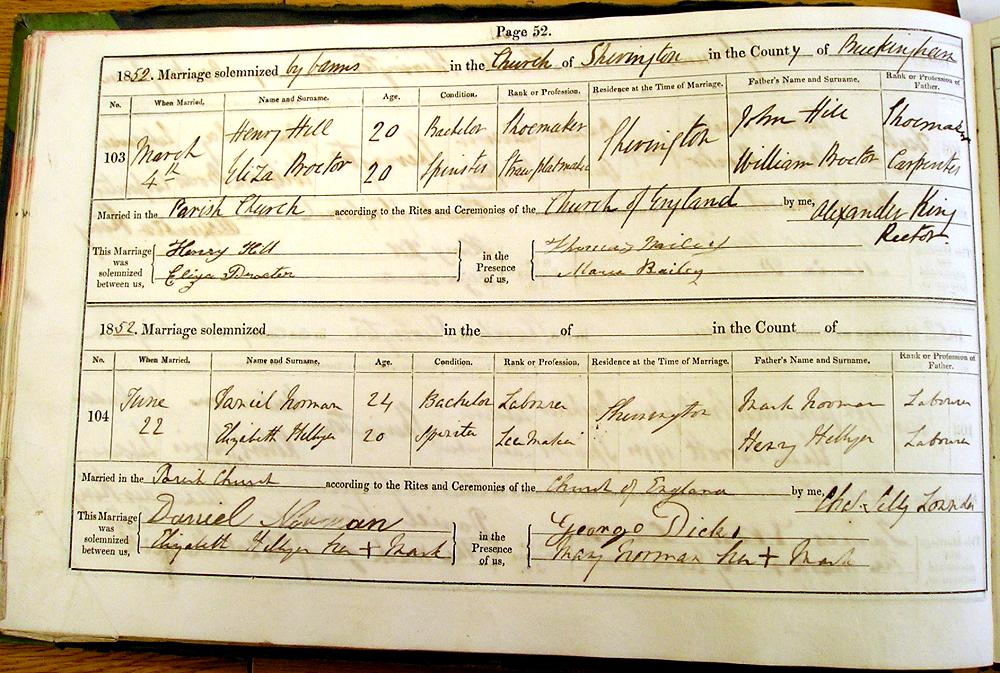 Page 52.
1852. Marriage solemnized by banns in the Church of Sherington in the County of Buckingham
No. When Married. Name and Surname. Age. Condition. Rank or Profession. Residence at the Time of Marriage. Father's Name and Surname. Rank or Profession of Father.
Henry Hill 20 Bachelor Shoemaker John Hill Shoemaker
103 March 4th Sherington
Eliza Proctor 20 Spinster Straw platmaker William Proctor Carpenter
Married in the Parish Church according to the Rites and Ceremonies of the Church of England by me, Alexander King
Rector.
This Marriage was solemnized between us, Henry Hill in the Presence of us, Thomas Bailey
Eliza Proctor Maria Bailey
1852. Marriage solemnized in the of in the Count of
No. When Married. Name and Surname. Age. Condition. Rank or Profession. Residence at the Time of Marriage. Father's Name and Surname. Rank or Profession of Father.
June Daniel Norman 24 Bachelor Labourer Mark Norman Labourer
104 22 Sherington
Elizabeth Hellyer 20 Spinster Lace Maker Henry Hellyer Labourer
Married in the Parish Church according to the Rites and Ceremonies of the Church of England by me,
This Marriage was solemnized between us, Daniel Norman in the Presence of us, George Dicks
Elizabeth Hellyer her + Mark Mary Norman her + Mark